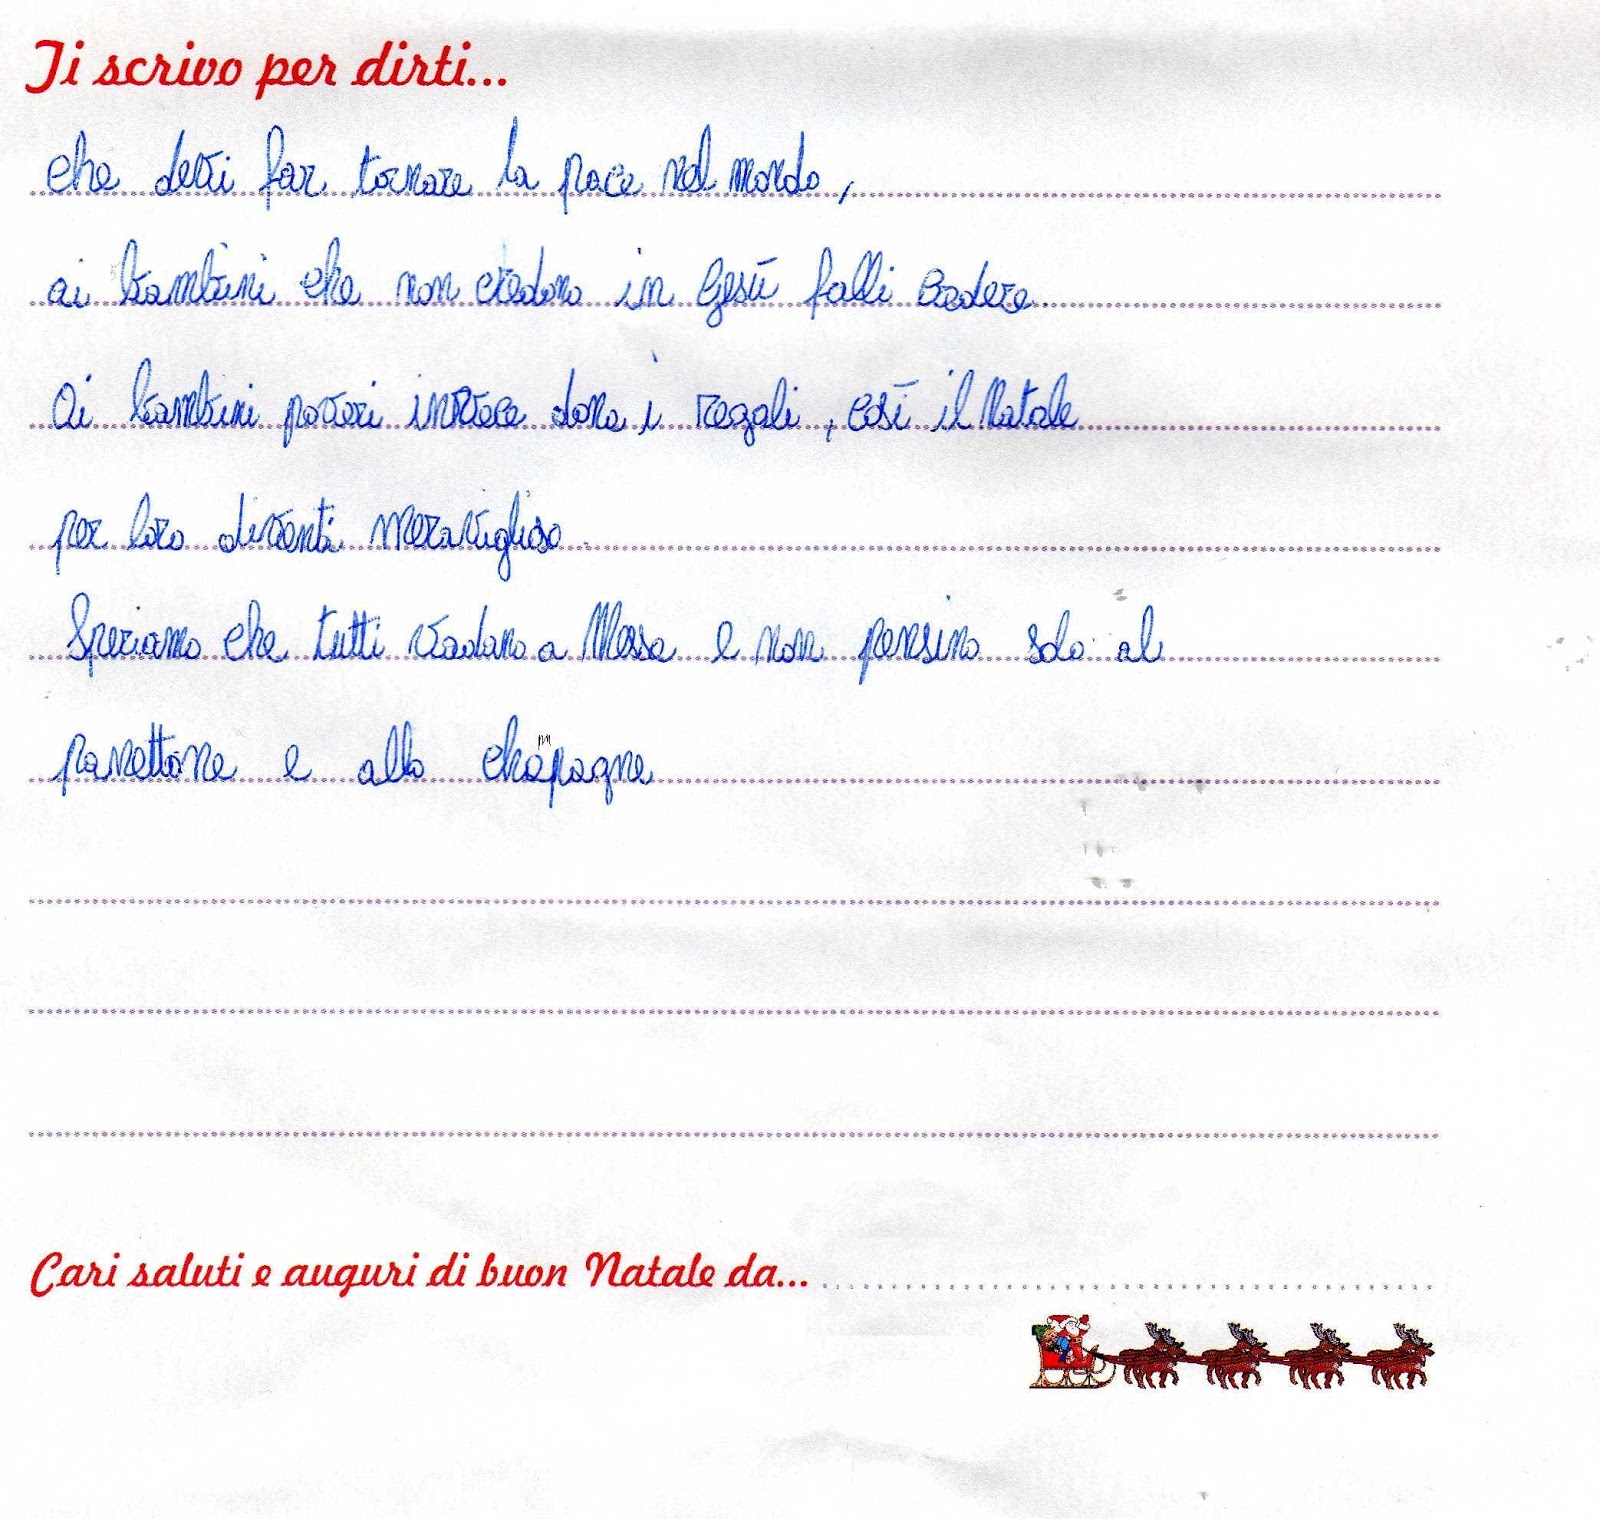 Ti scrivo per dirti...
che devi far tornare la pace nel mondo,
ai bambini che non credono in Gesù falli credere.
Ai bambini poveri invece dona i regali, così il Natale
per loro diventi meraviglioso.
Speriamo che tutti vadano a Messa e non pensino solo al
panettone e allo champagne
Cari saluti e auguri di buon Natale da...